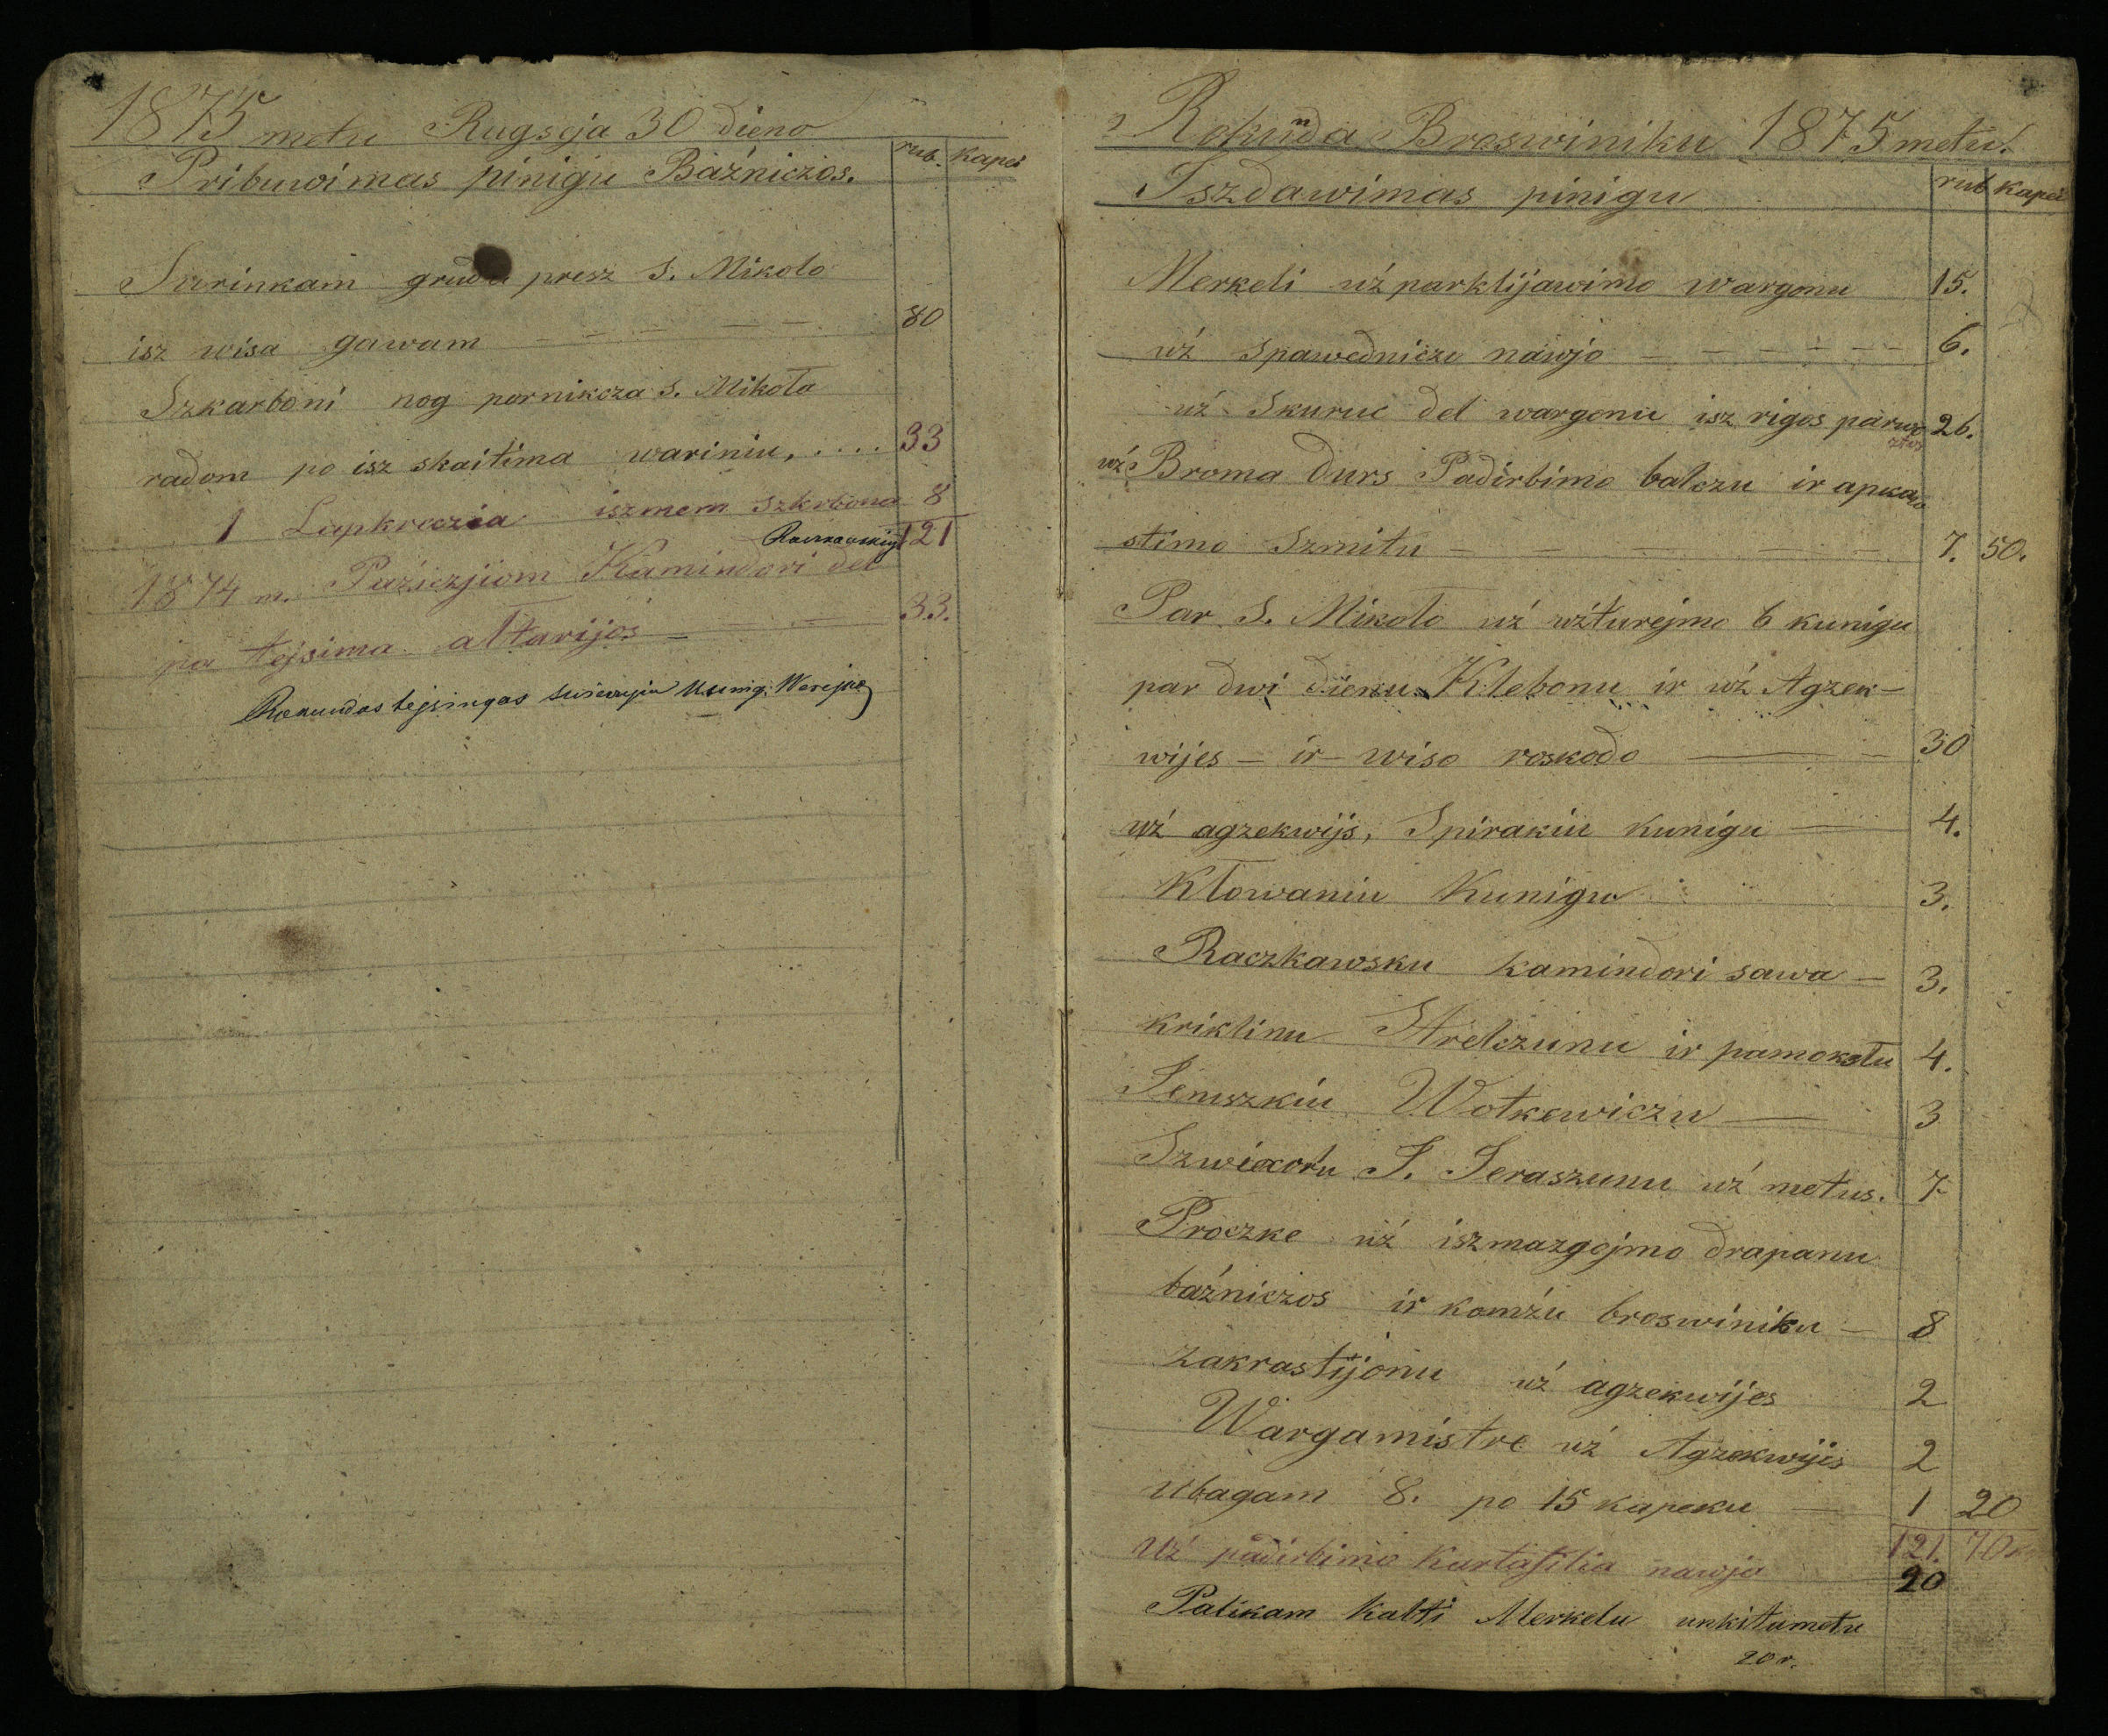 1875 metu Rugseja 30 dieno
Pribuwimas pinigu Bažniczos. rub. kapei
Surinkam grudu presz S. Mikolo
isz wisa gawam — — — — 80
Szkarboni nog pornikcza S. Mikoła
radom po isz skaitima wariniu, .... 33
1 Lapkreczia iszmem Szkrbona 8
121
1874 m. Pužiczjiom Kamindori del
pa tejsima ałtarijos — — — 33.
Rokundas tejsingas Kunig.
Rokunda Broswiniku 1875 metu.
Iszdawimas pinigu rub kapei
Merkeli už parklijawimo wargonu 15.
už Spawedniczu naujo — — — — — — 6.
už Skuruc del wargonu isz rigos parwo 26.
ztus
už Broma Durs Padirbimo balczu ir apkau
stimo Szmitu — — — — — 7. 50.
Par S. Mikolo už užturejmo 6 kunigu
par dwi dienu Klebonu ir už Agzek-
wijes — ir wiso roskodo — 30
už agzekwijs, Spirakiu kunigu — 4.
Kłowaniu Kunigu 3.
Raczkawsku kamindori sawa — 3.
kriklinu Strelczunu ir pamokslu 4.
Senuszkiu Wotkewiczu — 3
Szwixoru J. Jeraszunu už metus. 7
Proczke už iszmazgojmo drapanu
bažniczos ir komžu broswiniku — 8
zakrastijonu už agzekwijes 2
Wargamistre už Agzekwijes 2
Ubagam 8. po 15 kapeku — 1 20
121. 70
Už padirbimo naujo 20
Palikam Kalti Merkelu unkitumetu
20 r.